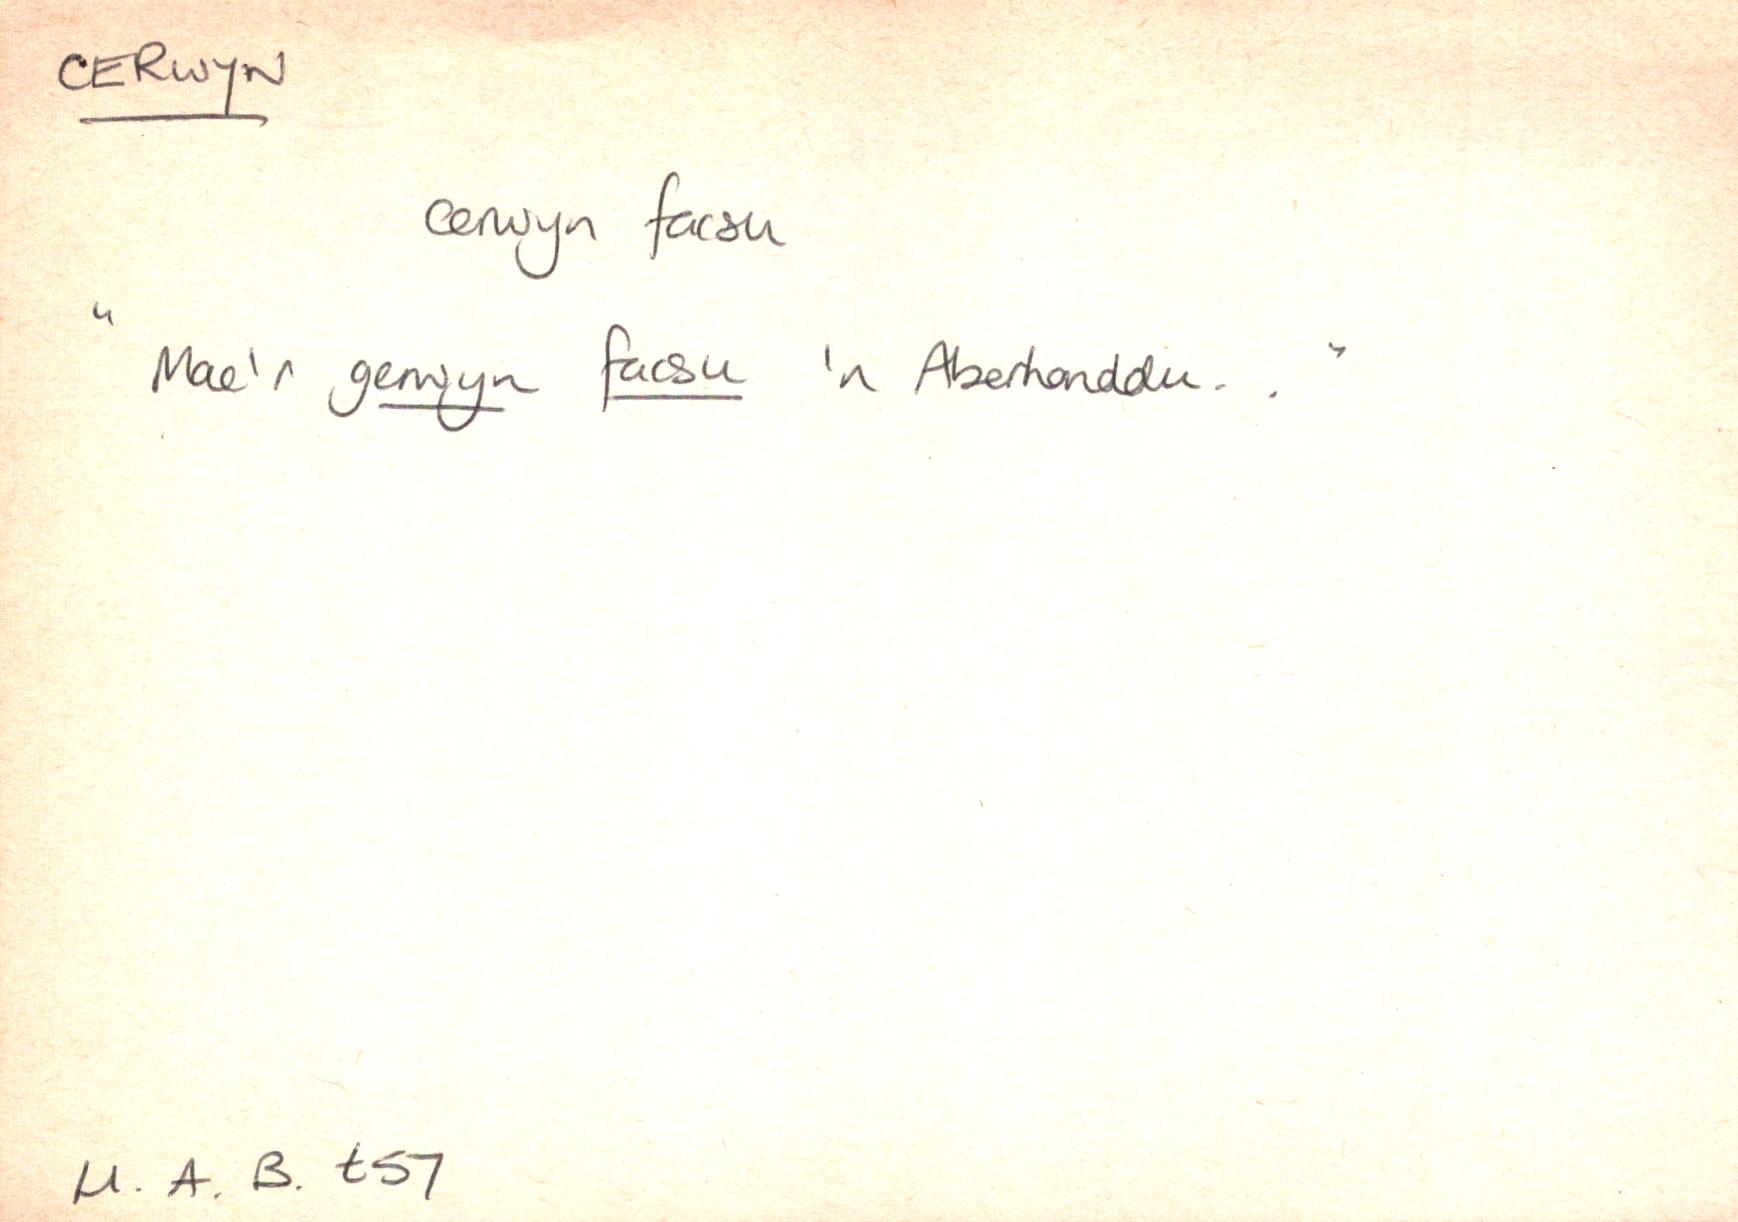 CERWYN
cerwyn facsu
"Mae'r gerwyn facsu 'n Aberhonddu. . "
M. A. B. t57